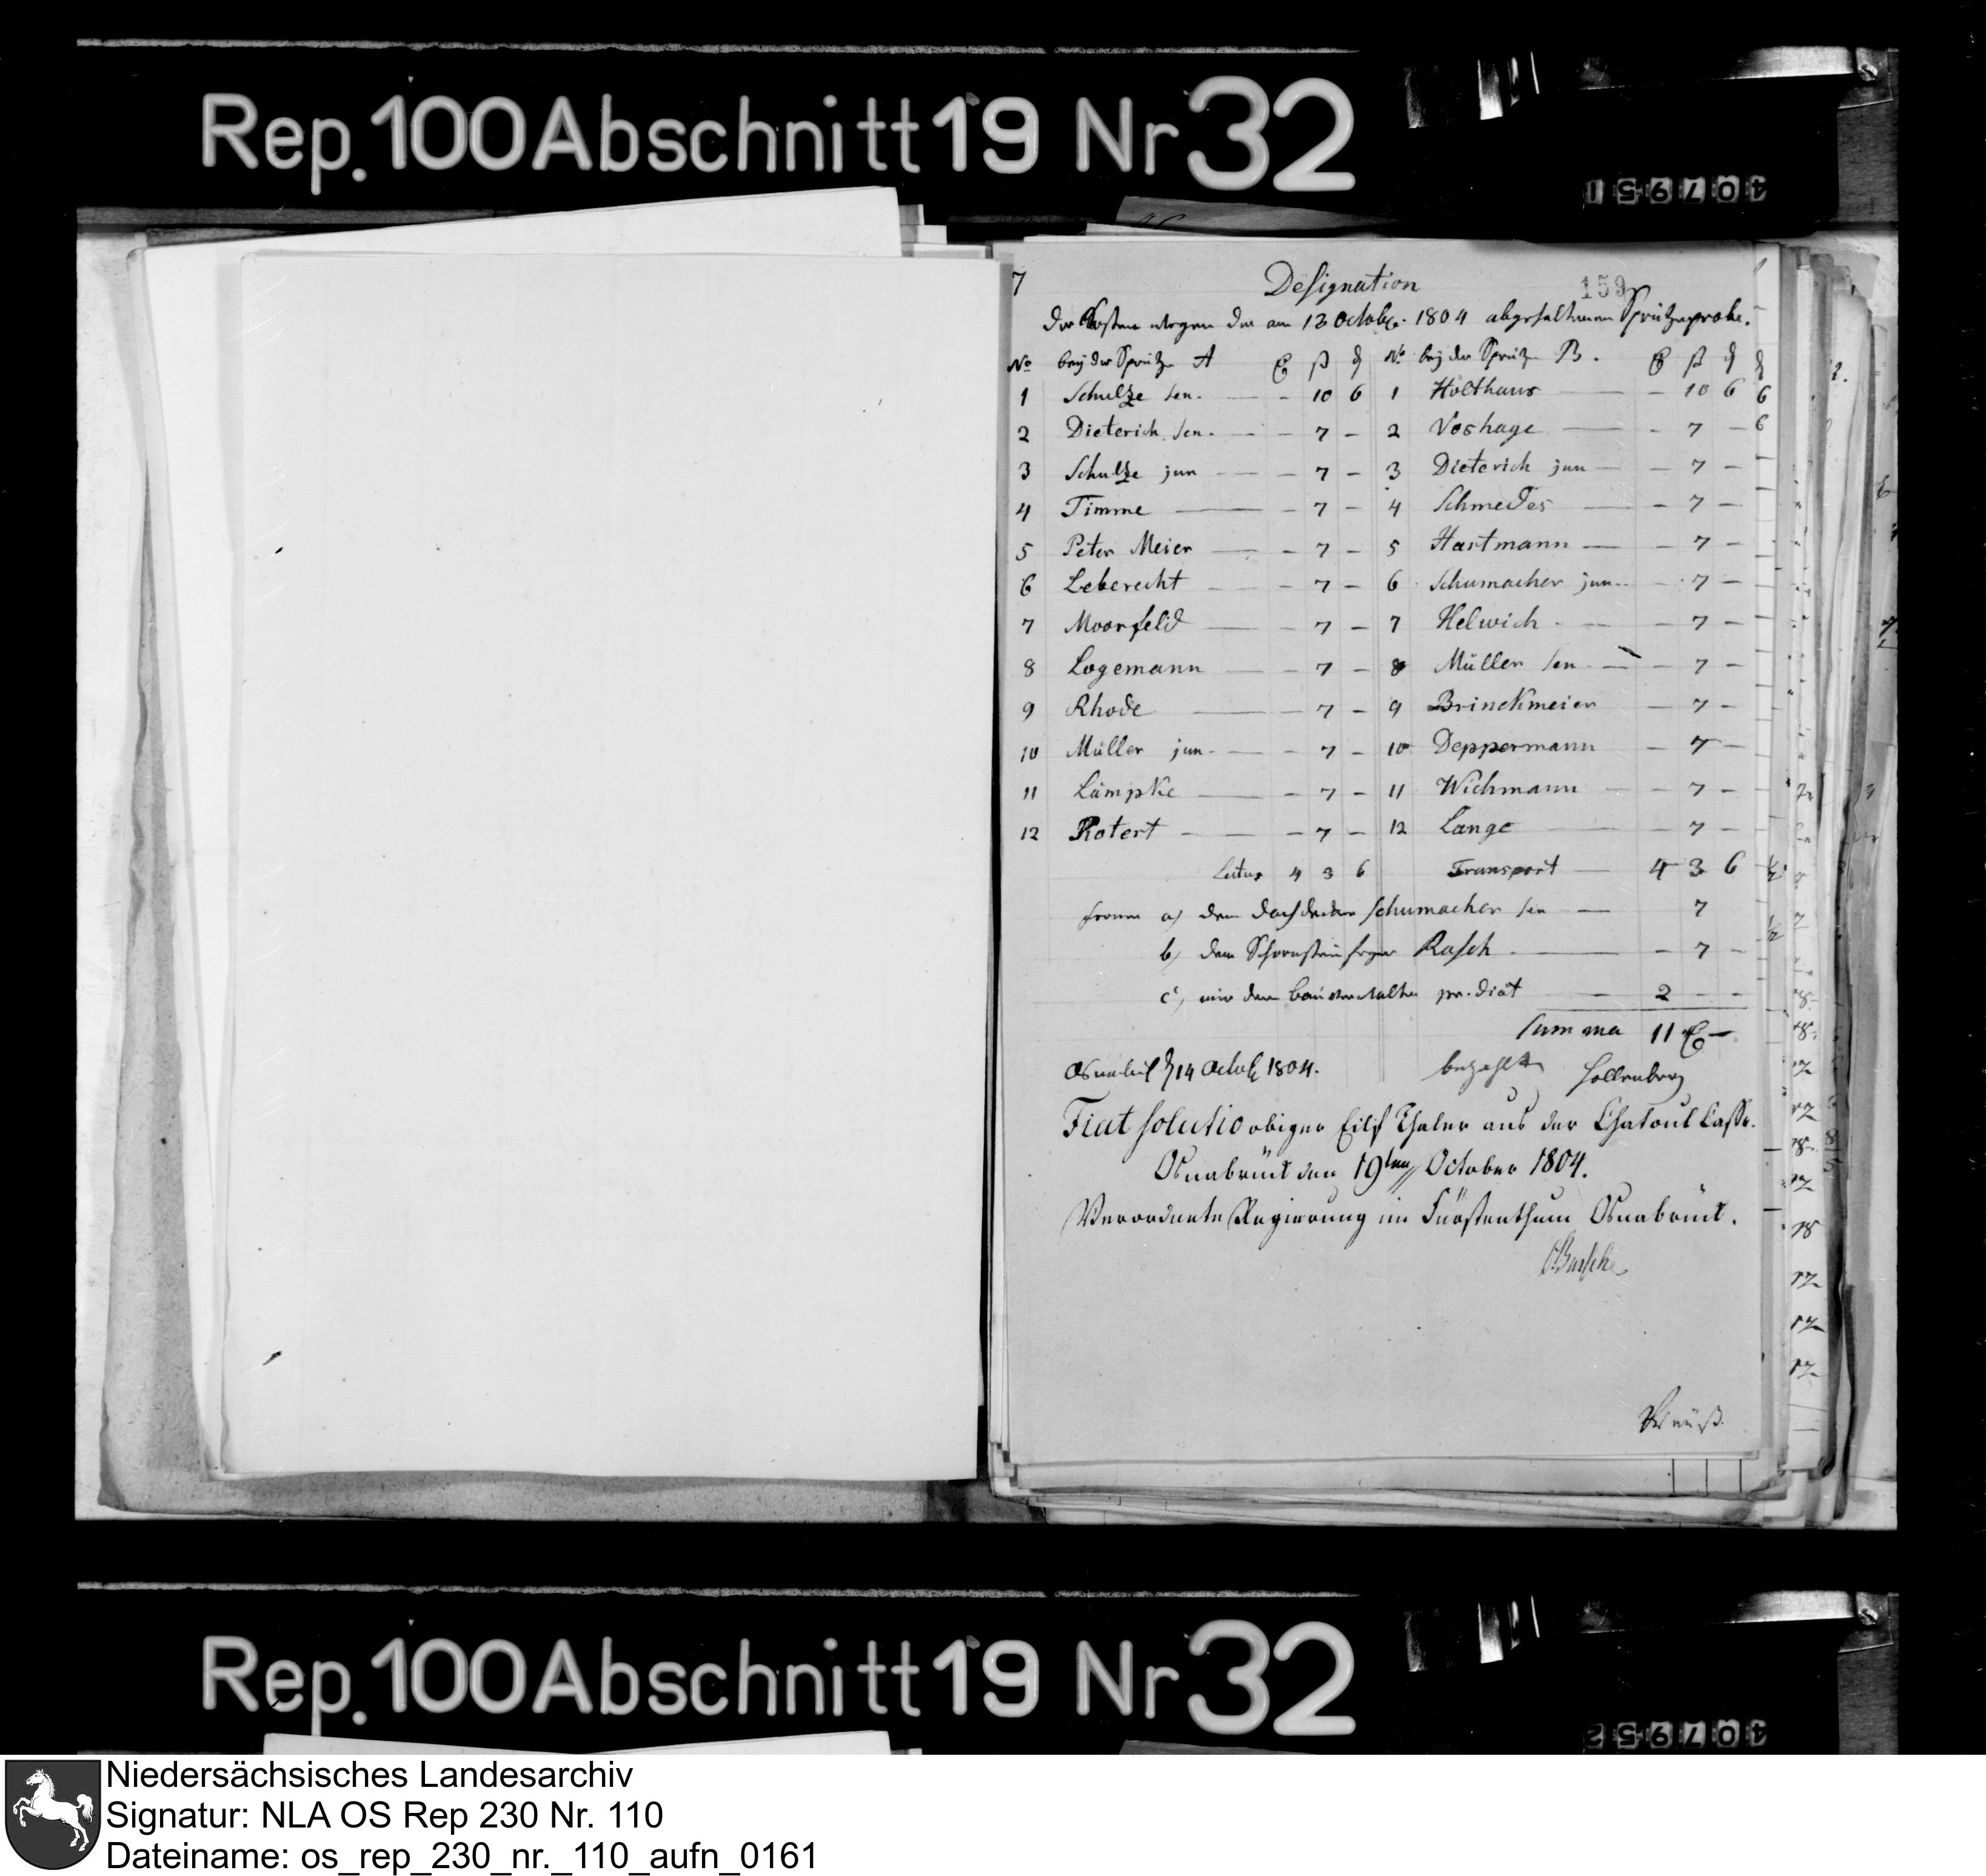 Rep. 100 Abschnitt 19 Nr 32
407951
7 Designation 159
der Kosten wegen der am 13 Octobr. 1804 abgehaltenen Sprützenprobe.
No bey der Sprütze A ß ₰ No bey der Sprütze B. ß ₰
1 Schulze sen. — - 10 6 1 Holthaus — - 10 6
2 Dieterich sen. — - 7 - 2 Voshage — - 7 -
3 Schulze jun — - 7 - 3 Dieterich jun — - 7 -
4 Timme — - 7 - 4 Schmedes — - 7 -
5 Peter Meier — - 7 - 5 Hartmann — - 7 -
6 Leberecht — - 7 - 6 Schumacher jun. - 7 -
7 Moorfeld — - 7 - 7 Helwich — - 7 -
8 Logemann — - 7 - 8 Müller sen — - 7 -
9 Rhode — - 7 - 9 Brinckmeier - 7 -
10 Müller jun. — - 7 - 10 Deppermann - 7 -
11 Lümpke — - 7 - 11 Wichmann — - 7 -
12 Rotert — - 7 - 12 Lange — - 7 -
Latus 4 3 6 Transport — 4 3 6
ferner a) dem Dachdecker Schumacher sen — 7
b) dem Schornsteinfeger Rasch — - 7 -
c) mir dem Bauverwalter pr. Diät — 2 - -
Summa 11 -
Osnabrück d 14 Octobr 1804. bezahlt Hollenberg
Fiat solutio obiger Eilf Thaler aus der Chatoul Casse.
Osnabrück den 19ten October 1804.
Verordnete Regierung im Fürstenthum Osnabrück.
Bussche
Rep. 100 Abschnitt 19 Nr 32
407952
Niedersächsisches Landesarchiv
Signatur: NLA OS Rep 230 Nr. 110
Dateiname: os_rep_230_nr._110_aufn_0161